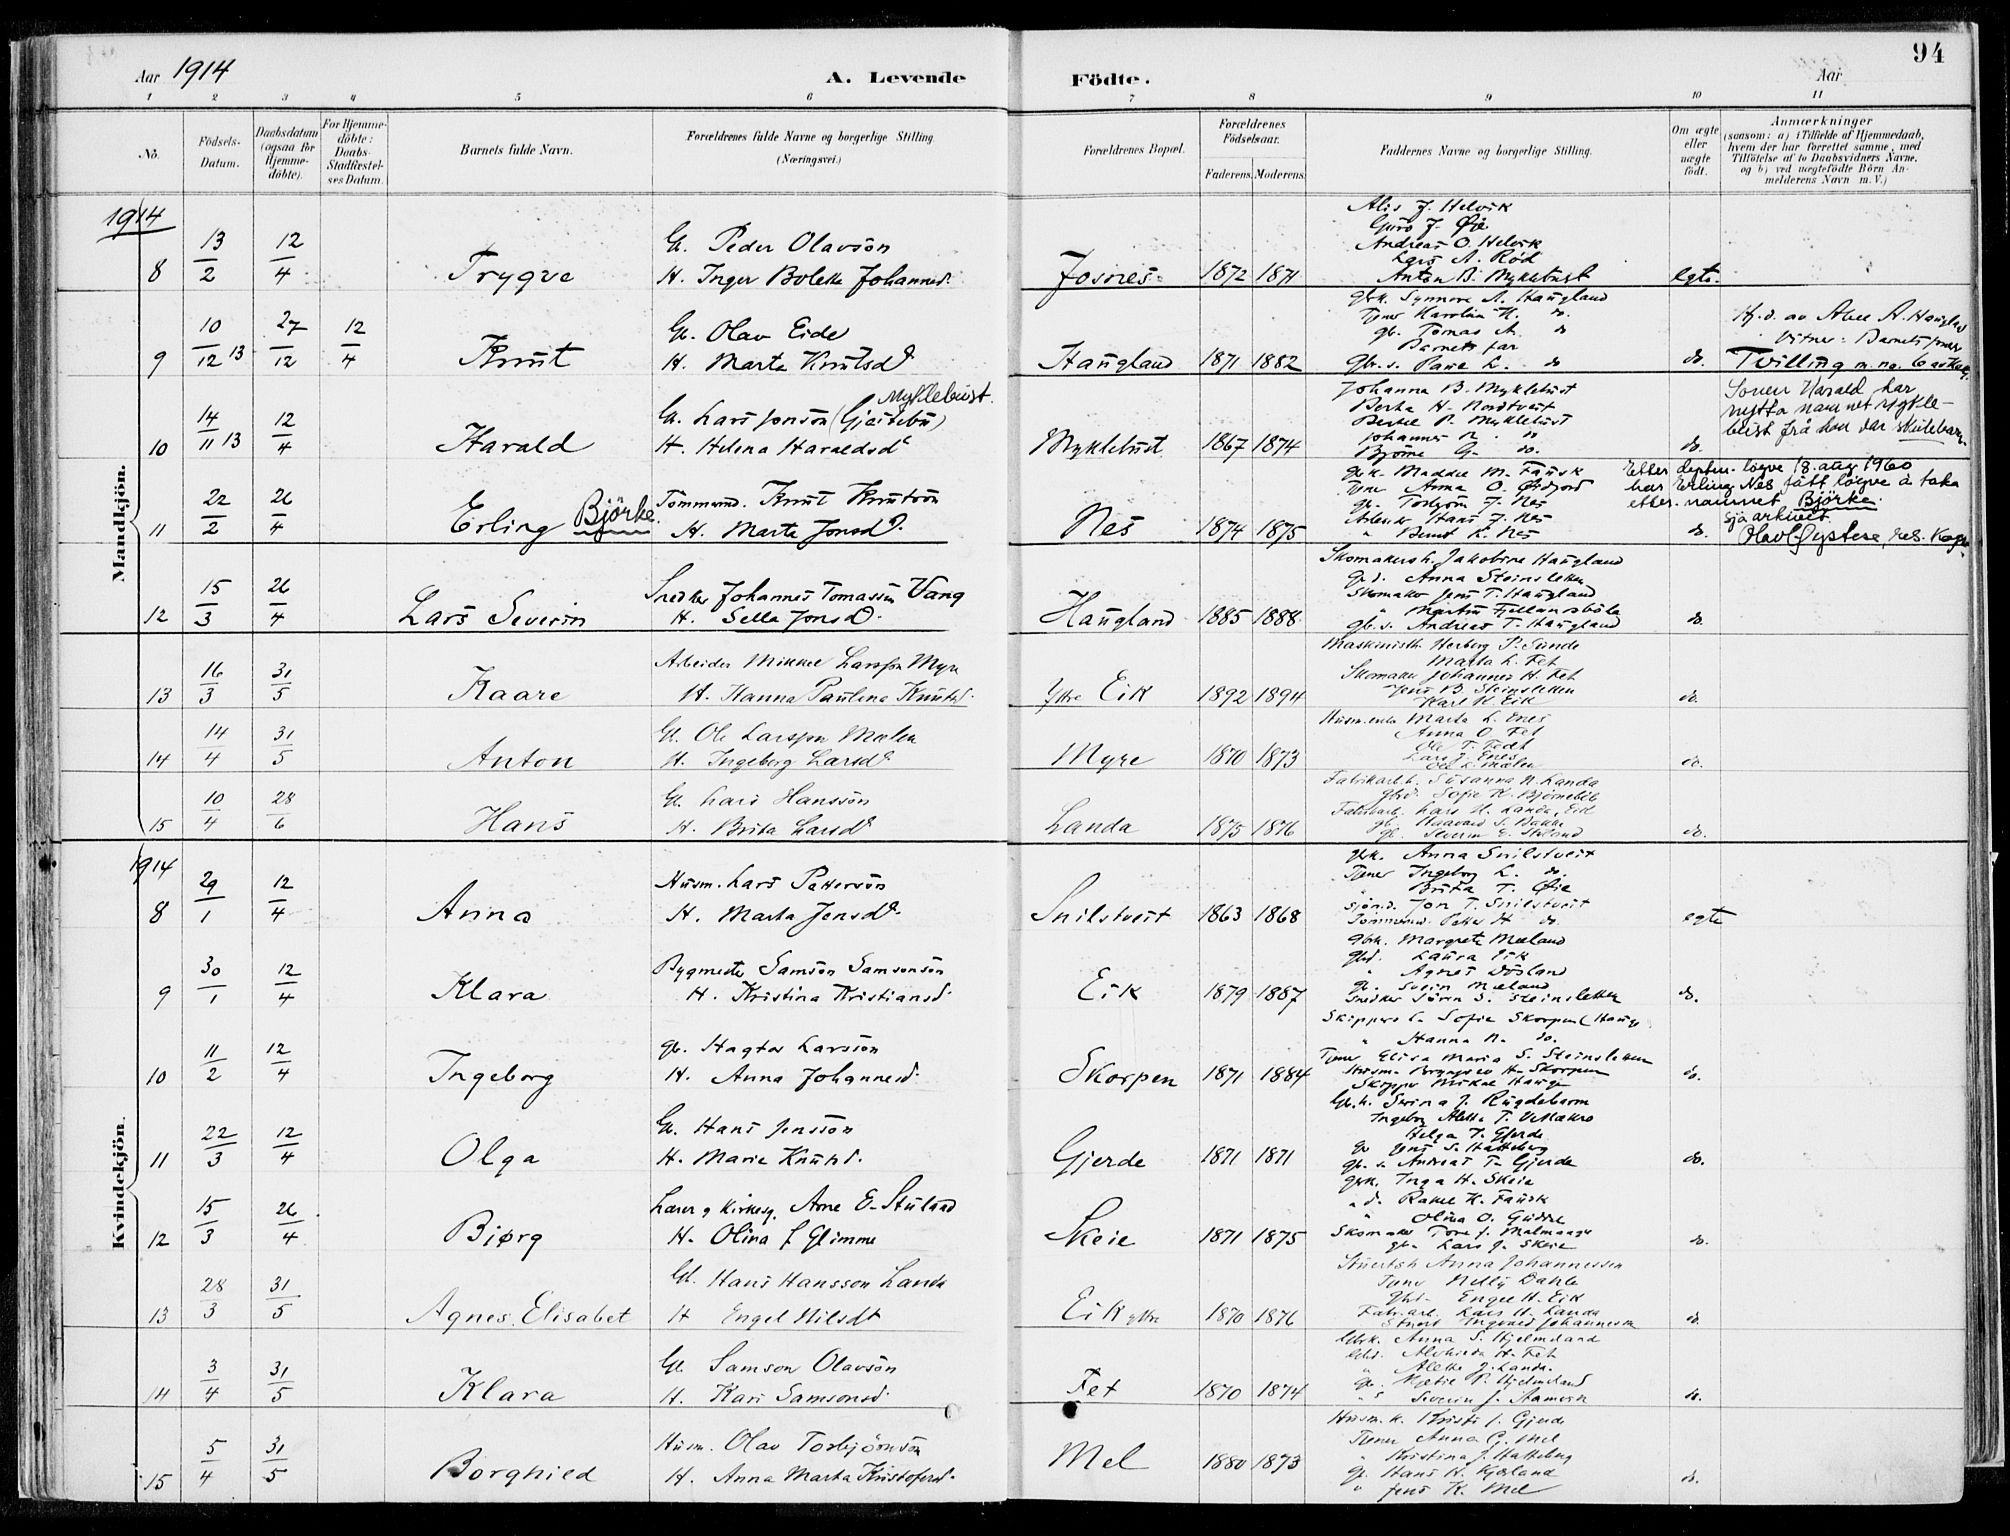 94
Aar 1914 A. Levende Födte. Aar
1 2 3 4 5 6 7 8 9 10 11
No.
Födsels-Datum.
Daabsdatum (ogsaa for Hjemme-döbte).
For Hjemme-döbte: Daabs-Stadfæstel-ses Datum.
Barnets fulde Navn.
Forældrenes fulde Navne og borgerlige Stilling (Næringsvei.)
Forældrenes Bopæl.
Forældrenes Födselsaar.
Faderens. Moderens.
Faddernes Navne og borgerlige Stilling.
Om ægte eller uægte födt.
Anmærkninger
(saasom: a) i Tilfælde af Hjemmedaab, hvem der har forrettet samme, med Tilföielse af to Daabsvidners Navne, og b) ved uægtefödte Börn An-melderens Navn m. V.)
Mandkjön.
1914
8 13/2 12/4 Trygve
G. Peder Olavson
H. Inger Bolette Johannesd.
Fosnes 1872 1871
Alis J. Helvik
Guro J. Øie
Andreas O. Helvik
Lars A. Röd
Anton B. Myklebust
egte.
9 10/12 13 27/12 12/4 Knut
G. Olav Eide
H. Marta Knutsd
Haugland 1871 1882
gbk. Synnøve A. Haugland
Tjener Karolina K. do.
gb. Tomas A. do
Barnets far
Gbr.s. Paul L. do
do.
Hj.d. av Abel A. Haugland
Vitner: Barnets foreldre
Tvilling m. no. 6 av Kvkj.
10 14/11 13 12/4 Harald
G. Lars Jonson (Gjeitebu) Myklebust.
H. Helena Haraldsd
Myklebust 1867 1874
Johanna B. Myklebust
Berta H. Nordtveit
Bertel P. Myklebust
Johannes do
Bjørne G. do.
do.
Sonen Harald har
nytta namnet Mykle-
bust frå han var skulebarn.
11 22/2 26/4 Erling Björke.
Tømmermd. Knut Knutson
H. Marta Jonsd.
Nes 1874 1875
gbk. Maddli M. Fausk
Tjener Anna O. Østfjord
gb. Torbjörn J. Nes
Arbeider Hans J. Nes
" Bernt K. Nes
do.
Etter depten. løyve 18. aug 1960
har Erling Nes fått løyve å taka
etter-namnet Björke.
Sjå arkivet.
Olav Øystese, res. Kap.
12 15/3 26/4 Lars Severin
Snedker Johannes Tomassen Vang
H. Sella Jonsd.
Haugland 1885 1888
Skomakersh. Jakobine Haugland
Gbd. Anna Steinsletten
Skomaker Jens T. Haugland
" Martin Fjellandsböle
gb.s. Andreas T. Haugland
do.
13 16/3 31/5 Kaare
Arbeider Mikkel Larsson Myre
H. Hanna Paulina Knutsd.
Ytre Eik 1892 1894
Maskinisth. Herborg P. Sunde
Marta L. Fet
Skomaker Johannes H. Fet
Jens B. Steinsletten
Karl K. Eik
do.
14 14/4 31/5 Anton
G. Ole Larsson Mælen
H. Ingeborg Larsd
Myre 1870 1873
Husm.enke Marta L. Enes
Anna O. Fet
Ole T. Tvedt
Lars J. Enes
do.
15 10/4 28/6 Hans
G. Lars Hansson
H. Brita Larsd
Landa 1875 1876
Fabrikarb.h. Susanna N. Landa
gbd. Sofie K. Björneböle
Fabrikarb. Lars H. Landa, Eid
gb. Haavard S. Bakke
gb. Severin E. Skeland
do.
Kvindekjön.
1914
8 29/1 12/4 Anna
Husm. Lars Petterson
H. Marta Jensd.
Snilstveit 1863 1868
gbk. Anna Snilstveit
Tjener Ingeborg L. do.
" Brita T. Øie
sjömd. Jon T. Snilstveit
Tömmermd. Petter H do.
egte
9 30/1 12/4 Klara
Bygmester Samson Samsonson
H. Kristina Kristiansd.
Eik 1879 1887
gbk. Margrete Mæland
gbd. Laura Eik
" Agnes Døsland
gb. Svein Mæland
Snedker Søren S. Steinsletten
do.
10 11/2 12/4 Ingeborg
gb. Hagtor Larsson
H. Anna Johannesd.
Skorpen 1871 1884
Skippers h. Sofie Skorpen (Hauge)
" Hanna N. do.
Tjener Elisa Maria S. Steinsletten
Husm. Brynjulv H. Skorpen
Skipper Mikal Hauge
do.
11 22/3 12/4 Olga
G. Hans Jensson
H. Marie Knutsd.
Gjerde 1871 1871
Gb.k. Serina J. Rugdebarm
Ingeborg Alette T.
Helga T. Gjerde
Gb Jens S. Hatteberg
gb.s. Andreas T. Gjerde
do.
12 15/3 26/4 Biørg
Lærer og Kirkesg. Arne E. Stuland
H. Olina J. Glimme
Skeie 1871 1875
gbk. Inga H. Skeie
" d. Rakel K. Fausk
" Olina O. Guddal
Skomaker Tore J. Malmanger
gb. Lars J. Skeie
do.
13 28/3 31/5 Agnes Elisabet
G. Hans Hansson Landa
H Engel Nilsdt
Eik ytre 1870 1876
Stuertsh Anna Johannessen
Tjener Nelly Dahle
Gbd. Engel H. Eik
Fabr.arb. Lars H. Landa
Stuert Ingvald Johannessen
do.
14 3/4 31/5 Klara
G. Samson Olavson
H. Kari Samsonsd.
Fet 1870 1874
Gbrk. Anna S. Hjelmeland
Gbd. Alvhilda H. Fet
" Alette J. Landa.
gb. Matie P. Hjelmeland
" s Severin J. Aamvik
do.
15 5/4 31/5 Borghild
Husm. Olav Torbjörnson
H. Anna Marta Kristofersd.
Mel 1880 1873
Husm. k. Kristi J. Gjerde
Tjener Anna G. Mel
" Kristina J. Hatteberg
G. Hans H. Kjærland
" Jens K. Mel
do.